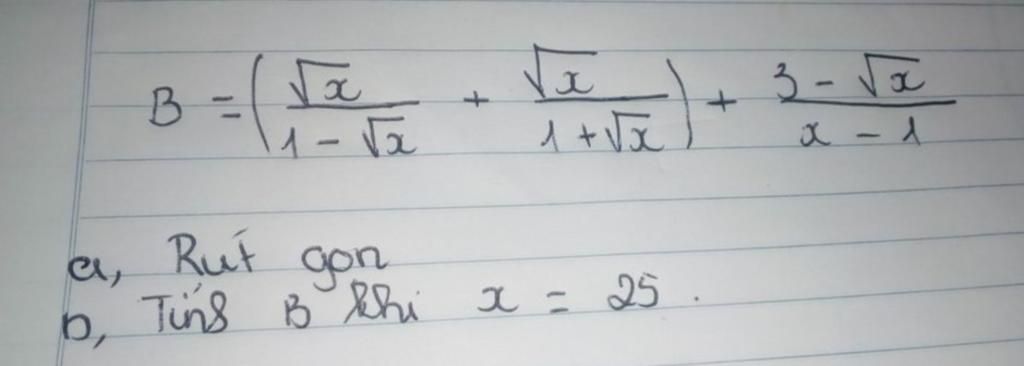 B = (√x / (1 - √x) + √x / (1 + √x)) + (3 - √x) / (x - 1)
a, Rút gọn
b, Tính B khi x = 25.